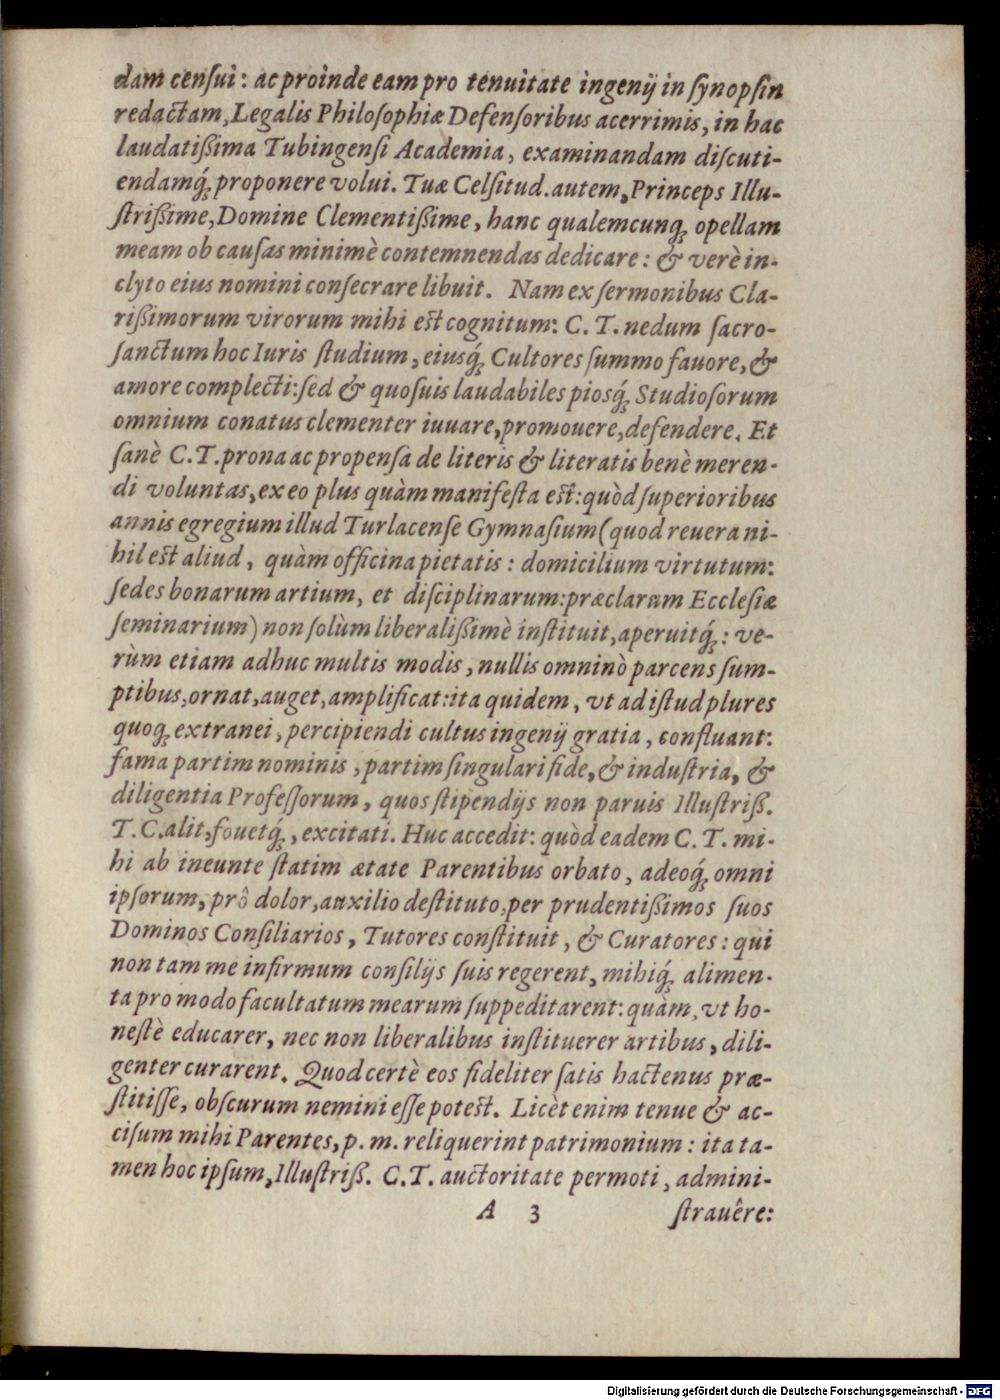 dam censui: ac proinde eam pro tenuitate ingenij in synopsin
redactam, Legalis Philosophiæ Defensoribus acerrimis, in hac
laudatißima Tubingensi Academia, examinandam discuti-
endamq́; proponere volui. Tuæ Celsitud. autem, Princeps Illu-
strißime, Domine Clementißime, hanc qualemcunq; opellam
meam ob causas minimè contemnendas dedicare: & verè in-
clyto eius nomini consecrare libuit. Nam ex sermonibus Cla-
rißimorum virorum mihi est cognitum: C. T. nedum sacro-
sanctum hoc Iuris studium, eiusq́; Cultores summo fauore, &
amore complecti: sed & quosuis laudabiles piosq́; Studiosorum
omnium conatus clementer iuuare, promouere, defendere. Et
sanè C. T. prona ac propensa de literis & literatis benè meren-
di voluntas, ex eo plus quàm manifesta est: quòd superioribus
annis egregium illud Turlacense Gymnasium (quod reuera ni-
hil est aliud, quàm officina pietatis: domicilium virtutum:
sedes bonarum artium, et disciplinarum: præclarum Ecclesiæ
seminarium) non solùm liberalißimè instituit, aperuitq́;: ve-
rùm etiam adhuc multis modis, nullis omninò parcens sum-
ptibus, ornat, auget, amplificat: ita quidem, vt ad istud plures
quoq; extranei, percipiendi cultus ingenij gratia, confluant:
fama partim nominis, partim singulari fide, & industria, &
diligentia Professorum, quos stipendijs non paruis Illustriß.
T. C. alit, fouetq́;, excitati. Huc accedit: quòd eadem C. T. mi-
hi ab ineunte statim ætate Parentibus orbato, adeoq́; omni
ipsorum, prô dolor, auxilio destituto, per prudentißimos suos
Dominos Consiliarios, Tutores constituit, & Curatores: qui
non tam me infirmum consilijs suis regerent, mihiq́; alimen-
ta pro modo facultatum mearum suppeditarent: quàm, vt ho-
nestè educarer, nec non liberalibus instituerer artibus, dili-
genter curarent. Quod certè eos fideliter satis hactenus præ-
stitisse, obscurum nemini esse potest. Licèt enim tenue & ac-
cisum mihi Parentes, p. m. reliquerint patrimonium: ita ta-
men hoc ipsum, Illustriß. C. T. auctoritate permoti, admini-
A 3 strauêre:
Digitalisierung gefördert durch die Deutsche Forschungsgemeinschaft - DFG